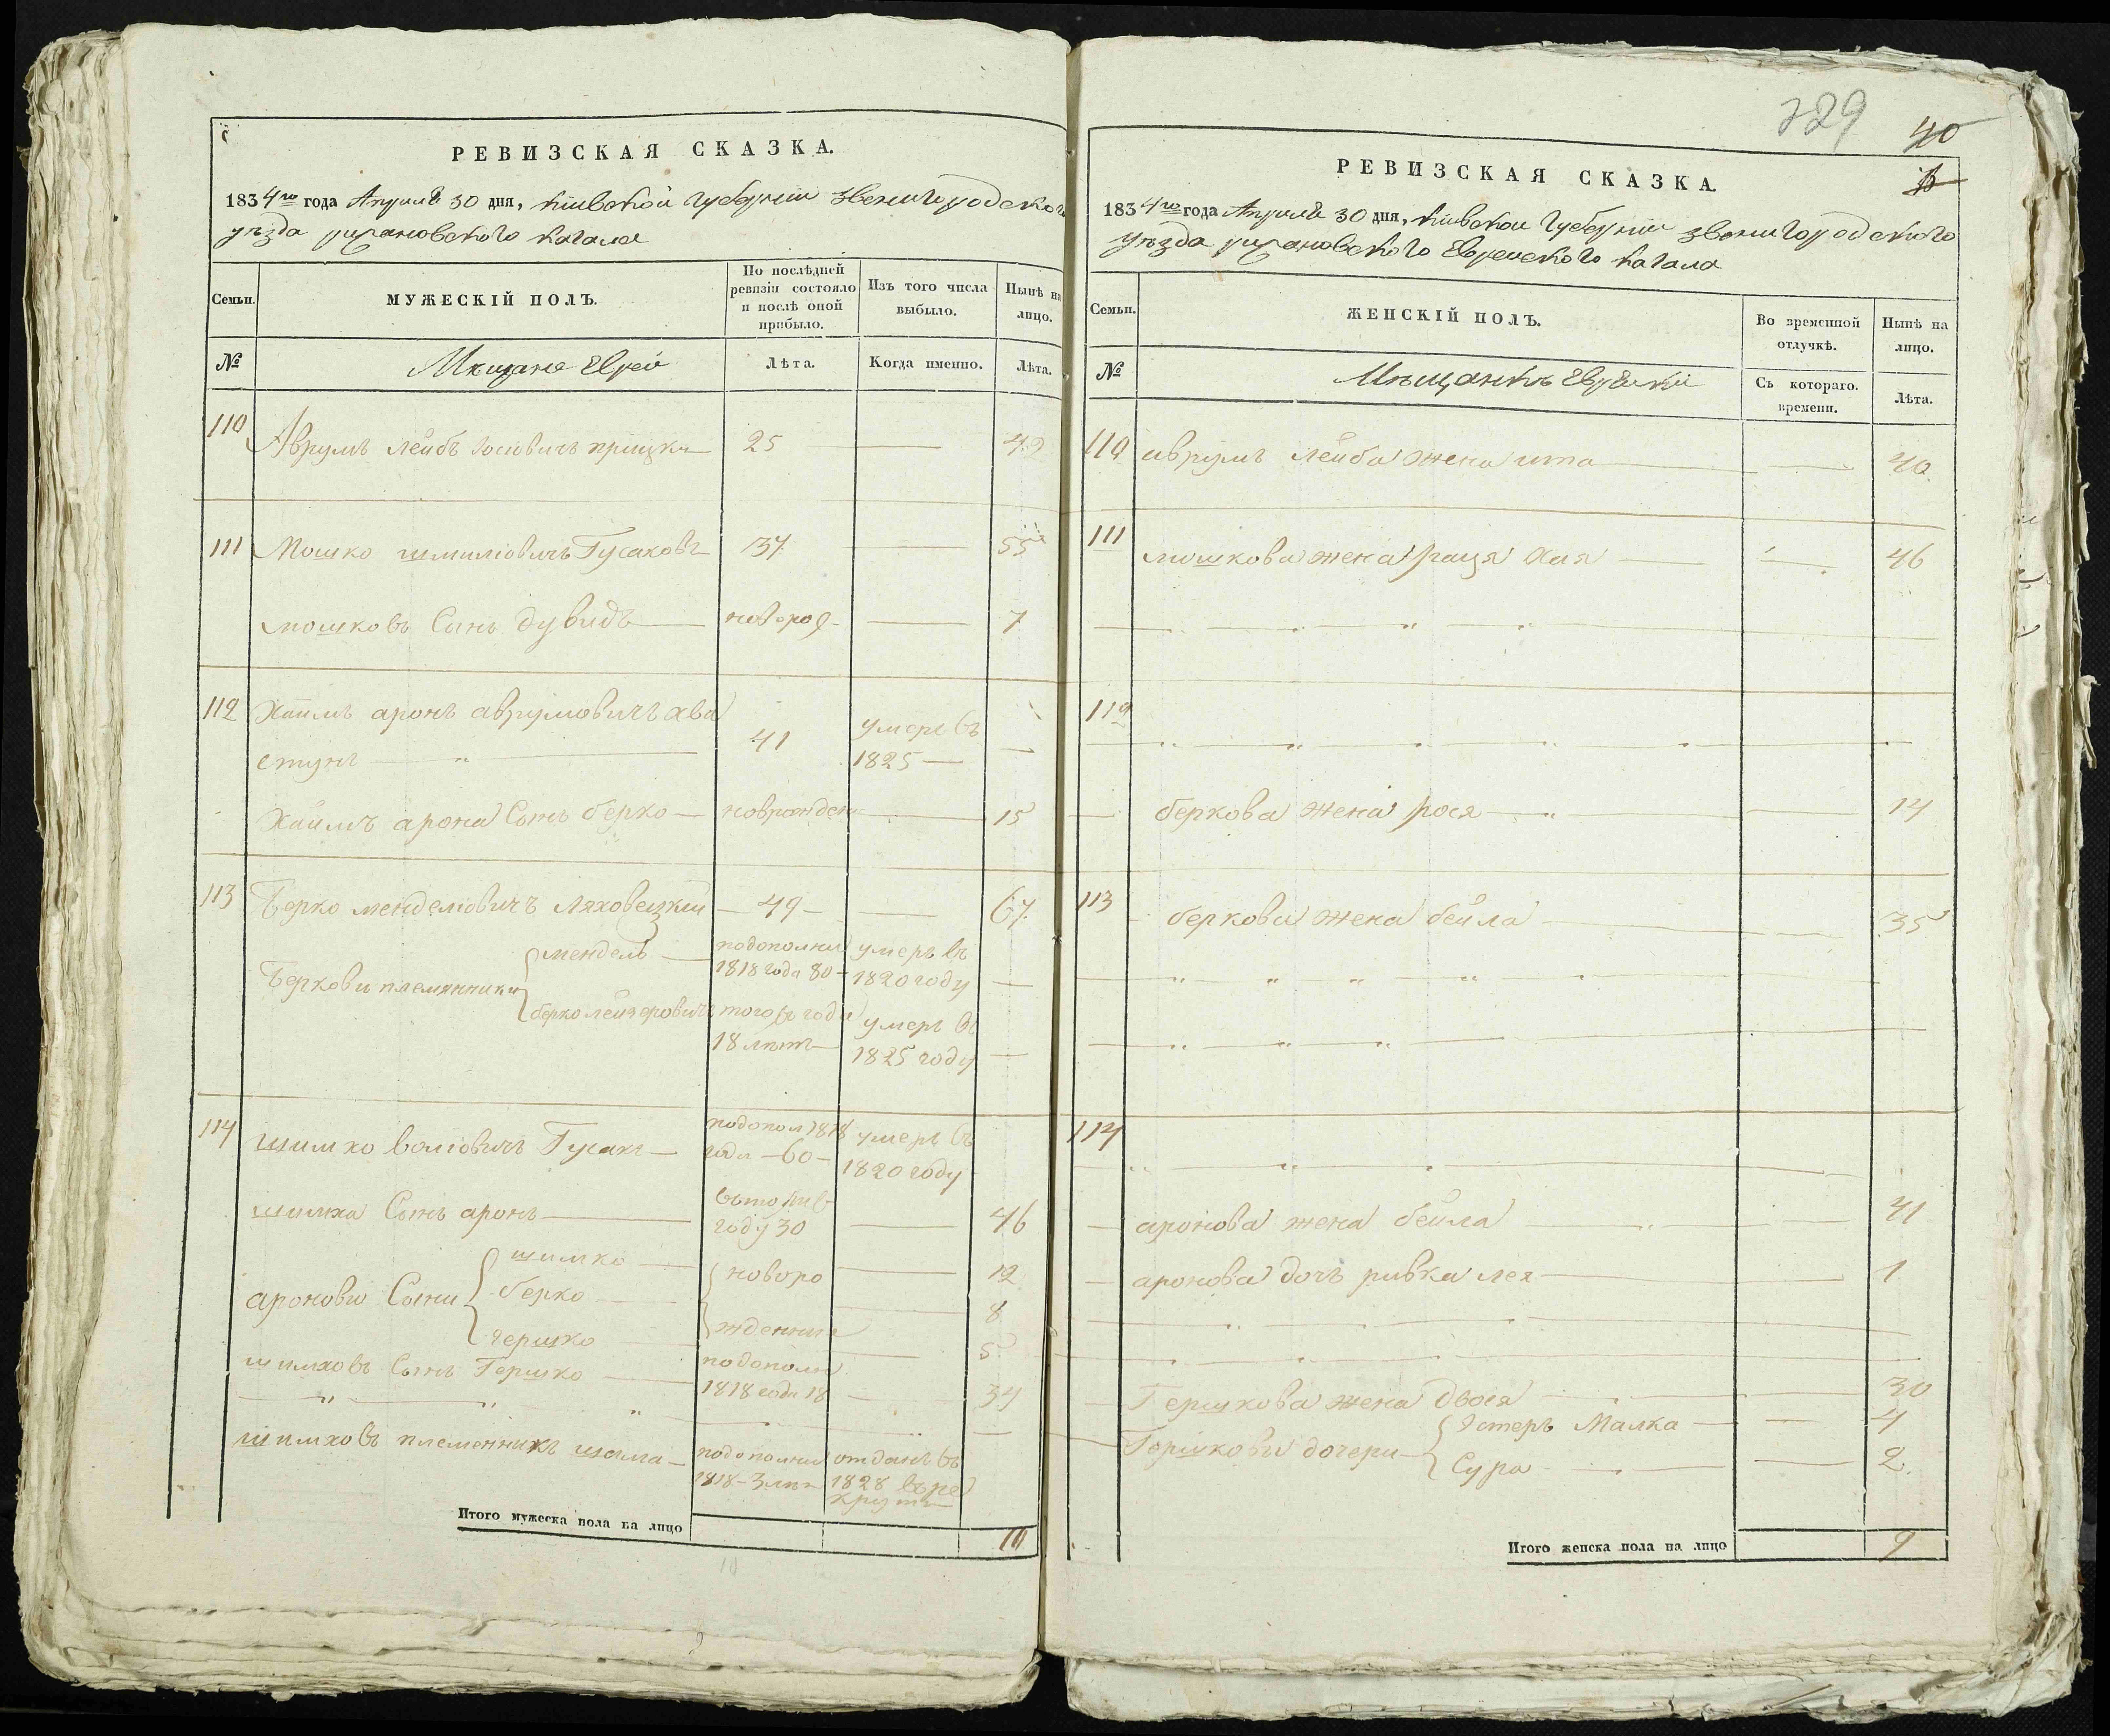 РЕВИЗСКАЯ СКАЗКА.
1834го года Апреля 30 дня, киевской губернии звенигородского
уезда рижановского кагала
Семьи.
МУЖЕСКІЙ ПОЛЪ.
По послѣдней ревизіи состояло и послѣ оной прибыло.
Изъ того числа выбыло.
Нынѣ на лицо.
№
Мещане Евреи
Лѣта.
Когда именно.
Лѣта.
110 Аврумъ лейбъ Іосіовичъ прицкеръ 25 — 42
111 Мошко шмиліовичъ Гусаковъ 37 — 55
мошковъ Сынъ дувидъ — новорож — 7
112 Хаимъ аронъ аврумовичъ хва
стунъ — 41 умеръ въ 1825 —
Хаимъ арона Сынъ берко — новрожден — 15
113 Берко менделіовичъ Ляховецкій — 49 — — 67
Беркови племянники
мендель — подополни 1818 года 80 — умеръ въ 1820 году —
берко лейзеровичъ того въ года 18 летъ умеръ въ 1825 году —
114 шимхо воліовичъ Гусакъ — подопол 1818 года — 60 — умеръ въ 1820 году
шимха Сынъ аронъ — въ томъ году 30 — 46
аронови Сыни
шимко — новоро — 12
берко — 8
гершко — жденніи — 5
шимховъ Сынъ Гершко — подополн 1818 года 18 — 34
шимховъ племенникъ шама — подополни 1818 — 3 летъ отданъ въ 1828 въ ре
круты
Итого мужеска пола на лицо 10
729
40
РЕВИЗСКАЯ СКАЗКА.
1834го года Апреля 30 дня, киевской губернии звенигородского
уезда рижановского Еврейского кагала
Семьи.
ЖЕНСКІЙ ПОЛЪ.
Во временной отлучкѣ.
Нынѣ на лицо.
№
Мещанки Еврейки
Съ котораго. времени.
Лѣта.
110 аврумъ Лейба жена ита — 40
111 мошкова жена раця хая — 46
112
беркова жена рося — 14
113 беркова жена бейла — 35
114
аронова жена бейла — 41
аронова дочъ ривка лея — 1
Гершкова жена двося — 30
Гершкови дочери
Эстеръ Малка — 4
Сура — 2
Итого женска пола на лицо 9